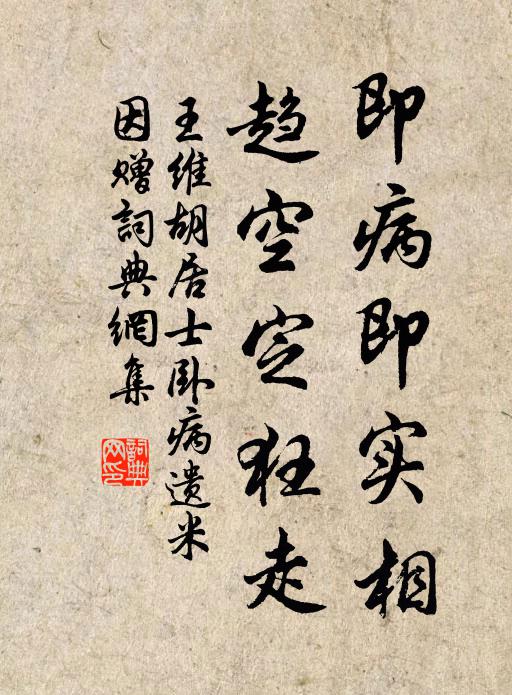 即病即实相
趋空定狂走
王维胡居士卧病遗米
因赠词典網集
詞典網印